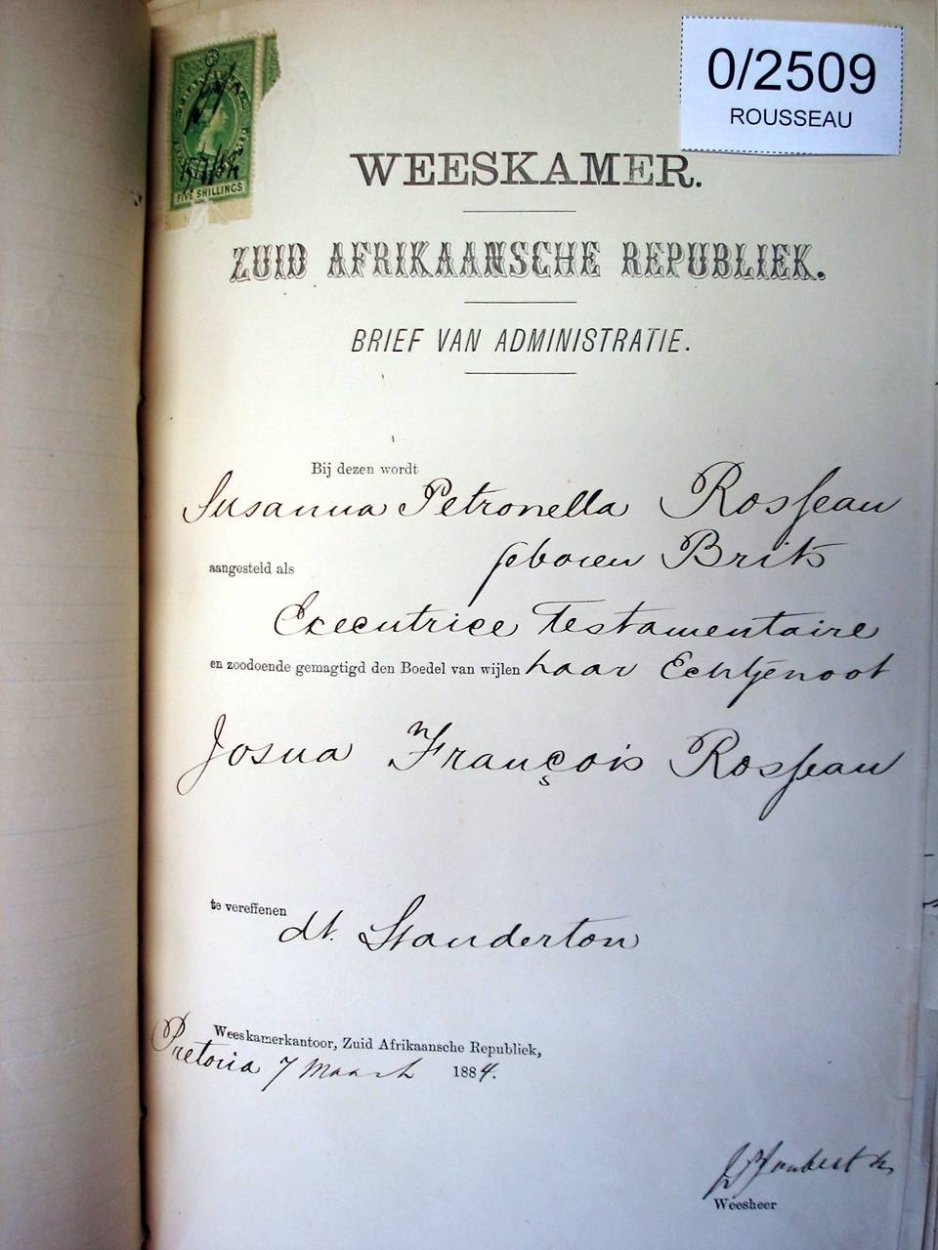 0/2509
ROUSSEAU
FIVE SHILLINGS
WEESKAMER.
ZUID AFRIKAANSCHE REPUBLIEK.
BRIEF VAN ADMINISTRATIE.
Bij dezen wordt
Susanna Petronella Rosseau
geboren Brits
aangesteld als
Executrice Testamentaire
en zoodoende gemagtigd den Boedel van wijlen haar Echtgenoot
Josua François Rosseau
te vereffenen
dt. Standerton
Weeskamerkantoor, Zuid Afrikaansche Republiek,
Pretoria 7 Maart 1884.
Weesheer